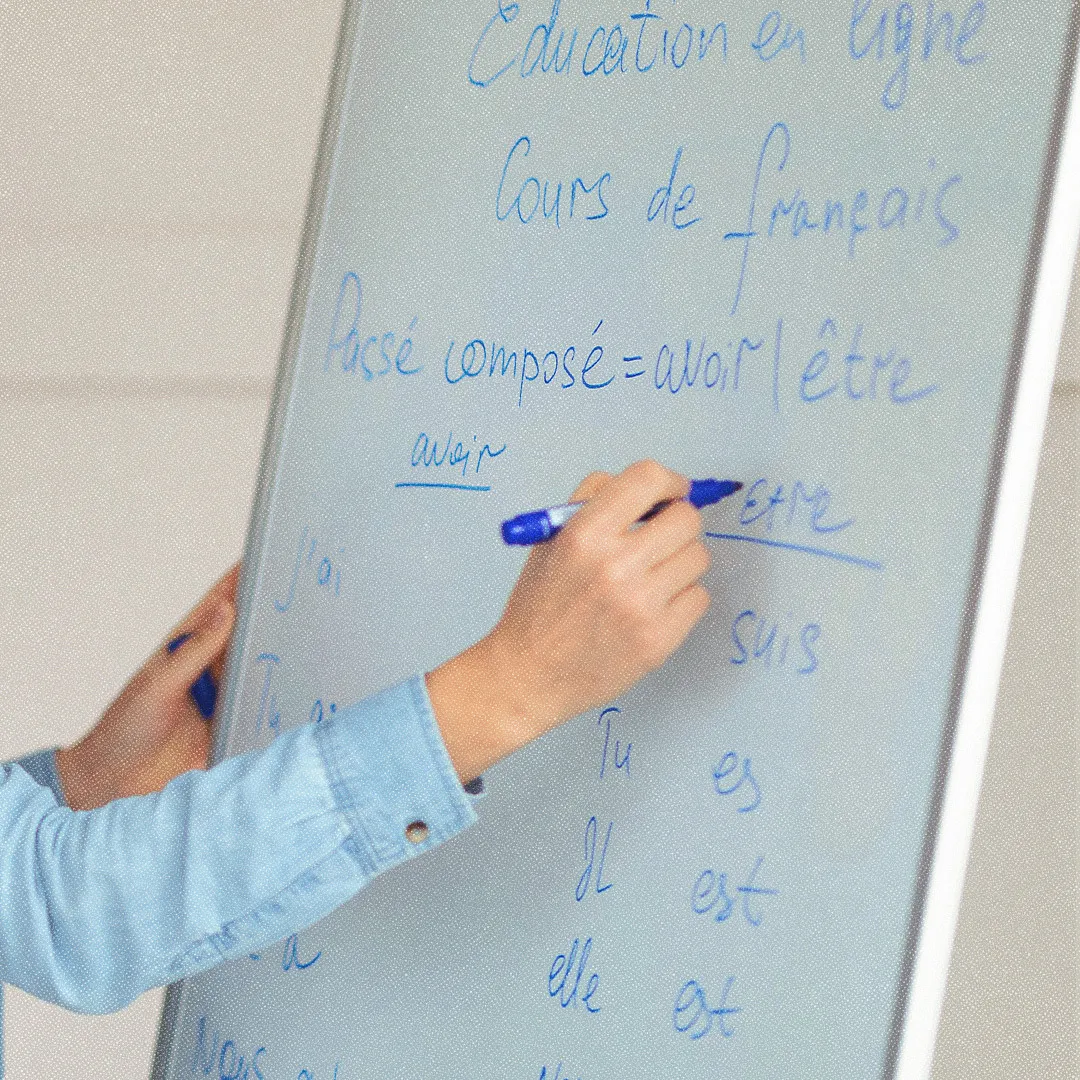 Éducation en ligne
Cours de français
Passé composé = avoir | être
avoir
être
j'ai
suis
Tu
Tu es
Il est
a
elle est
Nous